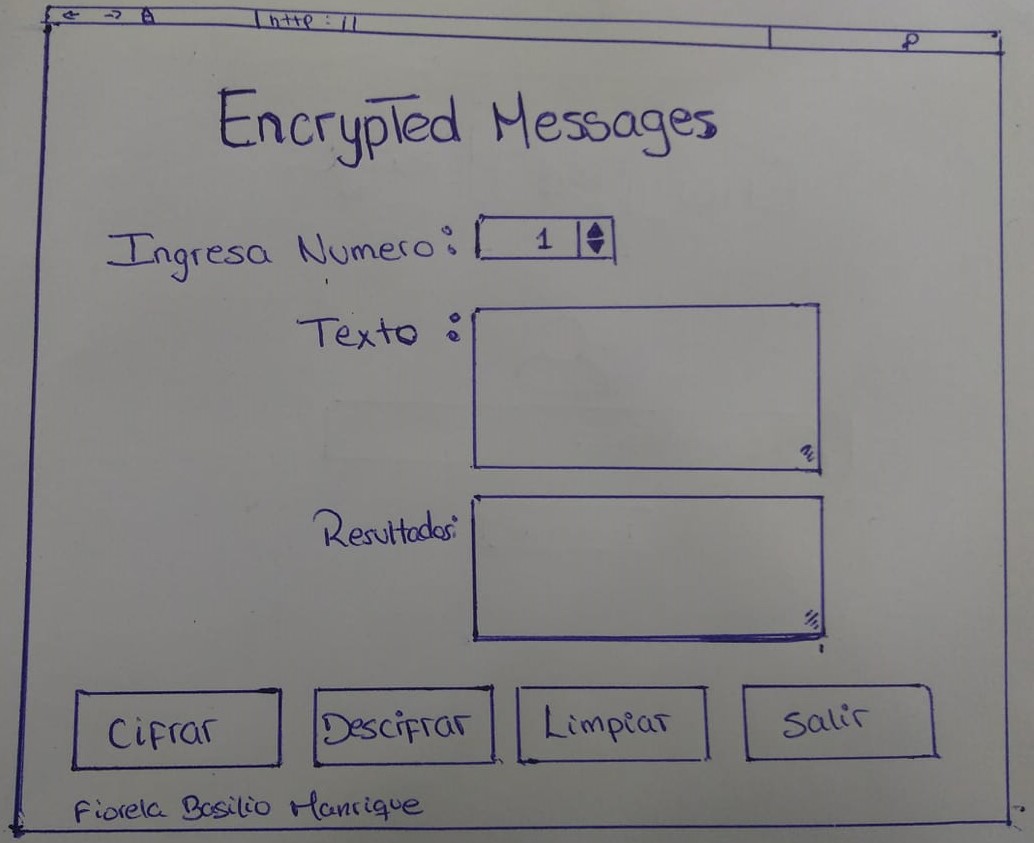 http://
Encrypted Messages
Ingresa Numero: 1
Texto :
Resultados:
Cifrar Descifrar Limpiar Salir
Fiorela Basilio Manrique